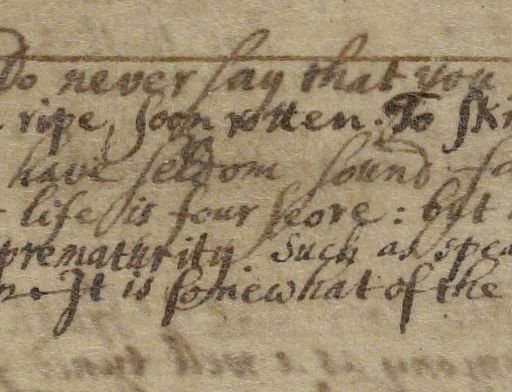 Do never say that you
ripe, soon rotten. To
have seldom sound
life is four score: but
prematurity Such as
It is somewhat of the